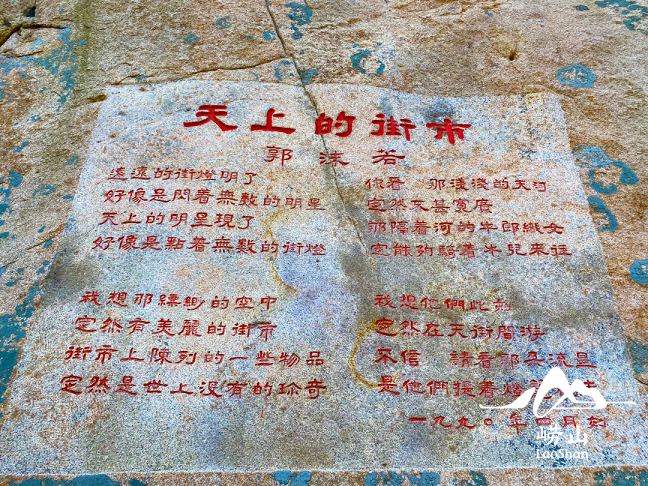 天上的街市
郭沫若
遠遠的街燈明了
好像是閃着無數的明星
天上的明星現了
好像是點着無數的街燈
我想那縹緲的空中
定然有美麗的街市
街市上陳列的一些物品
定然是世上沒有的珍奇
你看 那淺淺的天河
定然不甚寬廣
那隔着河的牛郎織女
定能夠騎着牛兒來往
我想他們此刻
定然在天街閒游
不信 請看那朵流星
是他們提着燈
一九九〇年四月
崂山
LaoShan